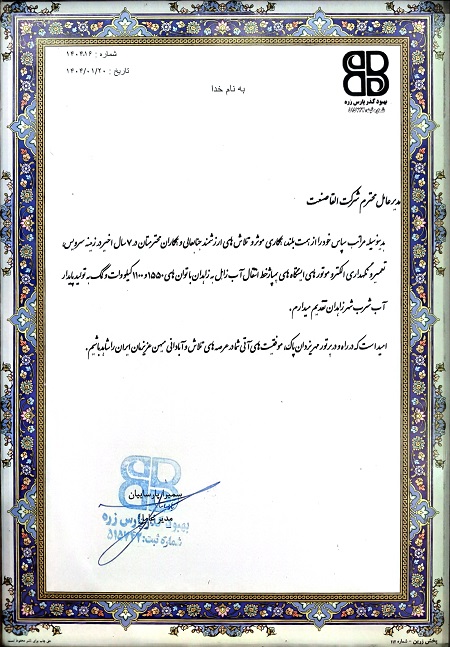 شماره : ۱۴۰۴۱۶
تاریخ : ۱۴۰۴/۰۱/۲۰
به نام خدا
بهبود گذر پارس زره
مدیرعامل محترم شرکت القا صنعت
بدینوسیله مراتب سپاس خود را از همت بلند، همکاری موثر و تلاش های ارزشمند جنابعالی و همکاران محترمتان در ۷ سال اخیر در زمینه سرویس،
تعمیر و نگهداری الکترو موتورهای ایستگاه های پمپاژ خط انتقال آب زابل به زاهدان با توان های ۵۵۰ و ۱۱۰۰ کیلووات و کمک به تولید پایدار
آب شرب شهر زاهدان تقدیم میدارم.
امید است که در راه و در پرتور مهر یزدان پاک، موفقیت های آتی شما در عرصه های تلاش و آبادانی میهن عزیزمان ایران را شاهد باشیم.
سمیرا پارساییان
مدیر عامل
بهبود گذر پارس زره
شماره ثبت: ۵۱۵۷۴۲
پخش زرین - شماره ۱۱۲